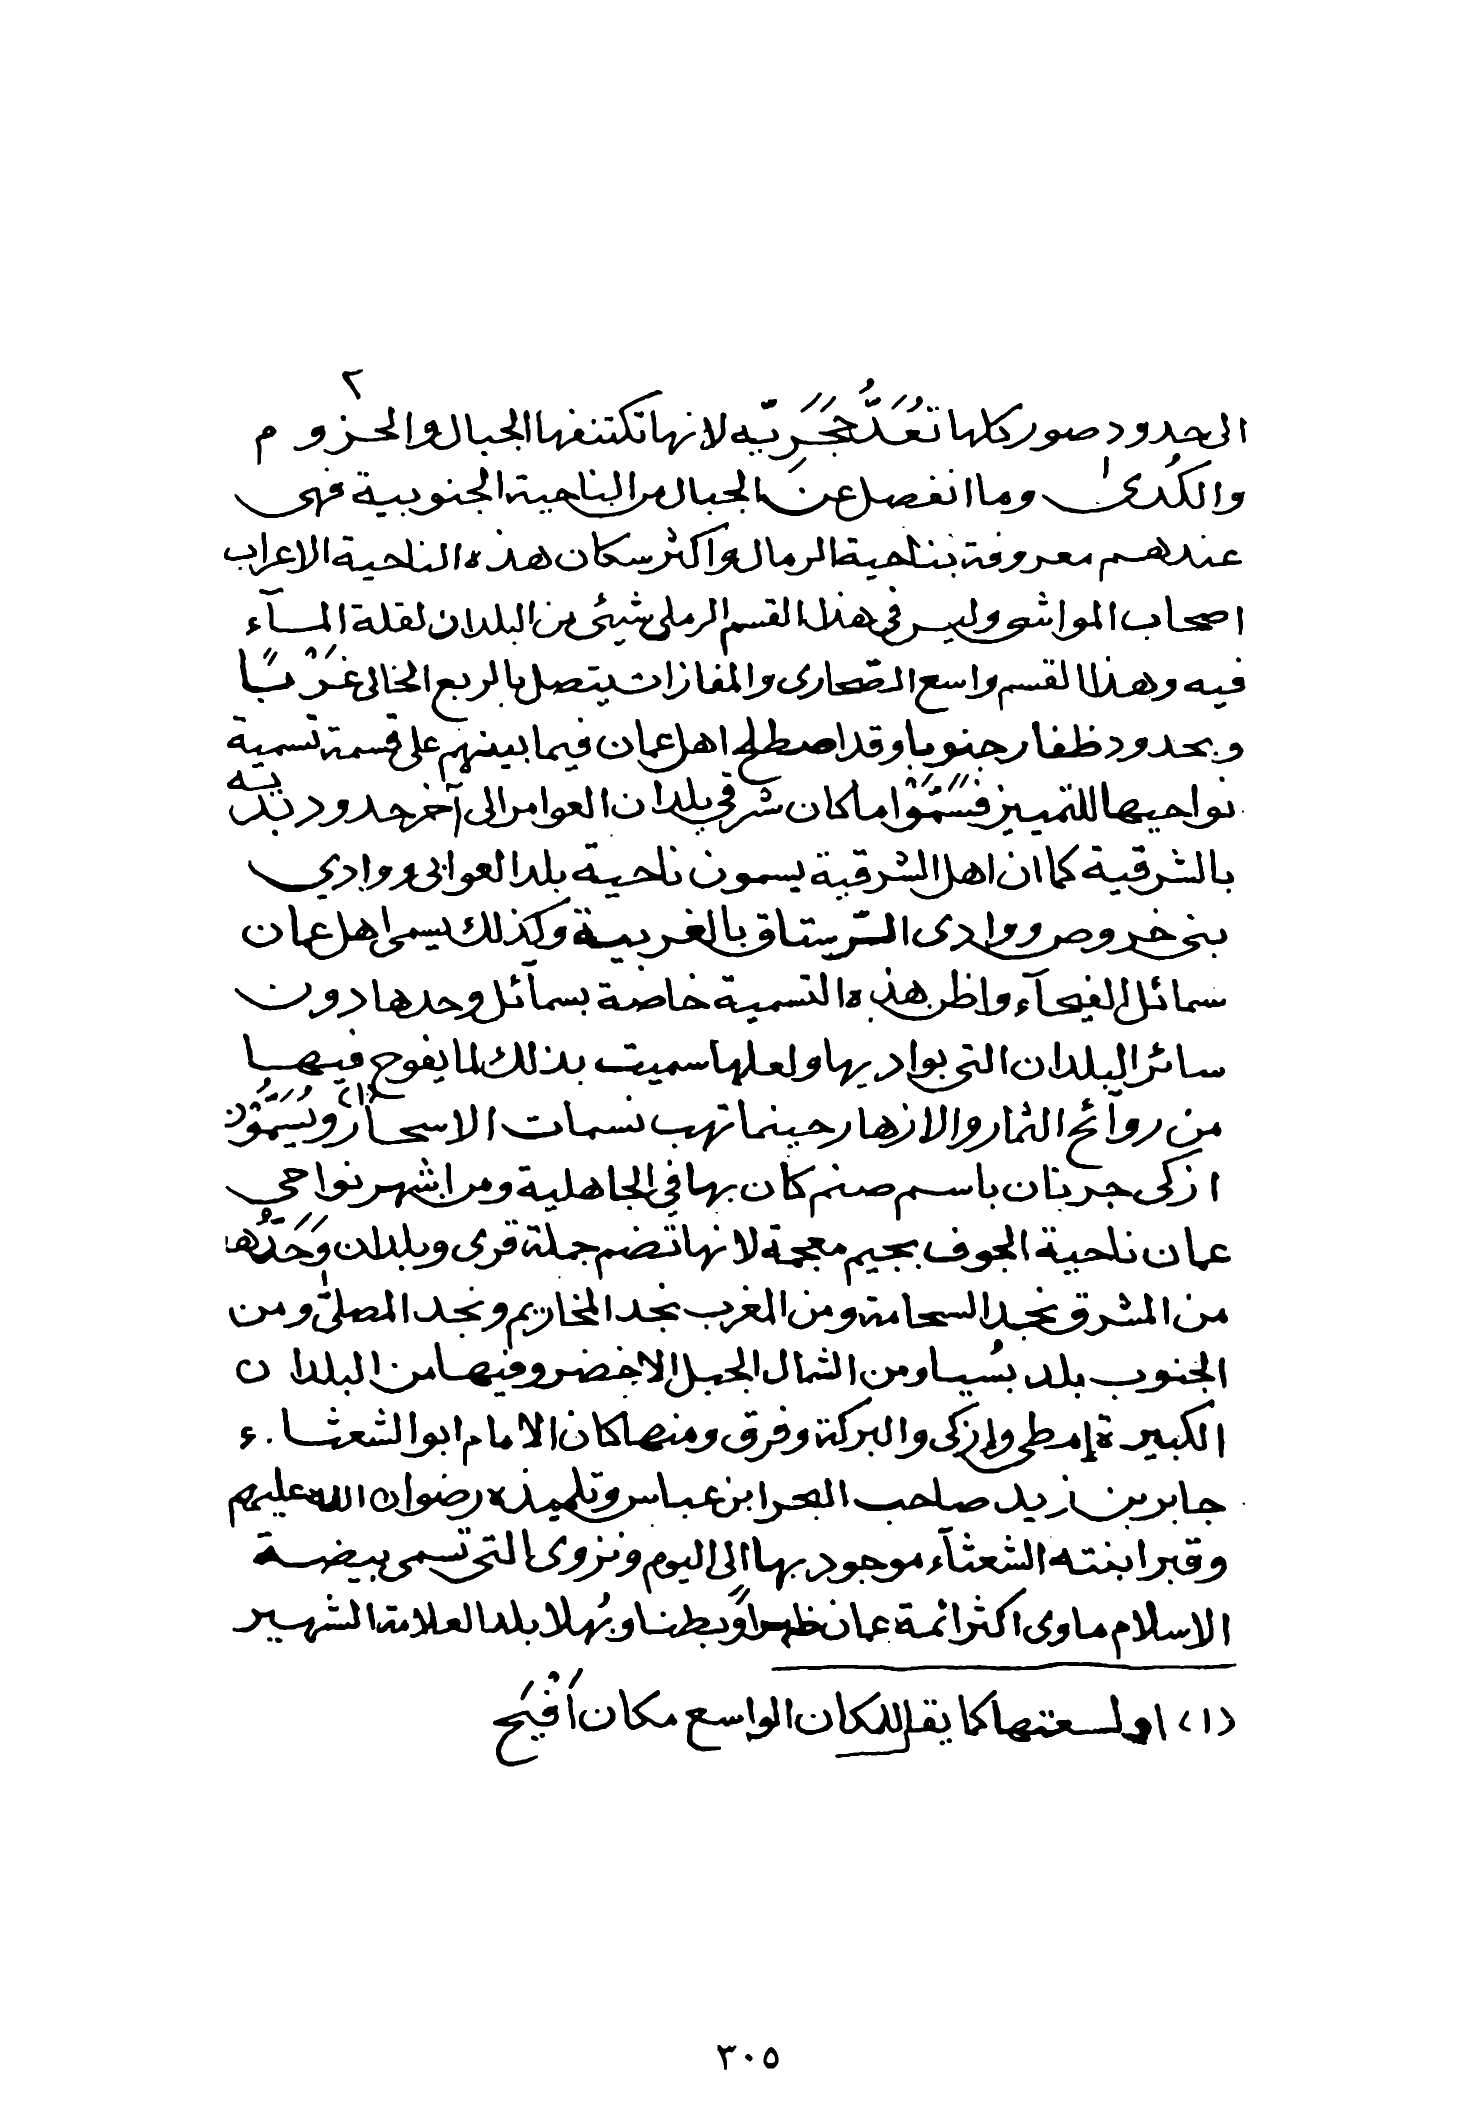 ٢
الى حدود صور كلها تُعَدُّ حَجَرِيّه لانها تكتنفها الجبال والحزوم
والكُدىٰ وما انفصل عن الجبال من الناحية الجنوبية فهى
عندهم معروفة بناحية الرمال واكثر سكان هذه الناحية الاعراب
اصحاب المواشى وليس فى هذا القسم الرملى شيئى من البلدان لقلة المآء
فيه وهذا القسم واسع الصّحارى والمفازات يتصل بالربع الخالى غَرْبًا
وبحدود ظفار جنوبا وقد اصطلح اهل عمان فيما بينهم على قسمة تسمية
نواحيها للتمييز فسَمَّوْا ما كان شرقي بلدان العوامر الى آخر حدود بديه
بالشرقية كما ان اهل الشرقية يسمون ناحية بلد العوابى ووادي
بنى خروص ووادى الرّستاق بالغربية وكذلك يسمى اهل عمان
سمائل الفيحآء واظن هذه التسمية خاصة بسمآئل وحدها دون
سائر البلدان التى بواديها ولعلها سميت بذلك لما يفوح فيها
من روآئح الثمار والازهار حينما تهب نسمات الاسحار (١) ويُسَمُّوْن
ازكى جرنان باسم صنم كان بها في الجاهلية ومن اشهر نواحي
عمان ناحية الجوف بجيم معجمة لانها تضم جملة قرى وبلدان وَحَدُّها
من المشرق نجد السحامة ومن المغرب نجد المخاريم ونجد المصلىّ ومن
الجنوب بلد بُسيا ومن الشمال الجبل الاخضر وفيها من البلدان
الكبيرة إمطي وإزكى والبركة وفرق ومنها كان الامام ابو الشعثاء
جابر بن زيد صاحب البحر ابن عباس وتلميذه رضوان الله عليهم
وقبر ابنته الشعثآء موجود بها الى اليوم ونزوى التى تسمى بيضة
الاسلام ماوى اكثر ائمة عمان ظهراً وبطنا وبُهلا بلد العلامة الشهير
(١) او لسعتها كما يقال للمكان الواسع مكان اَفْيَح
٣٠٥